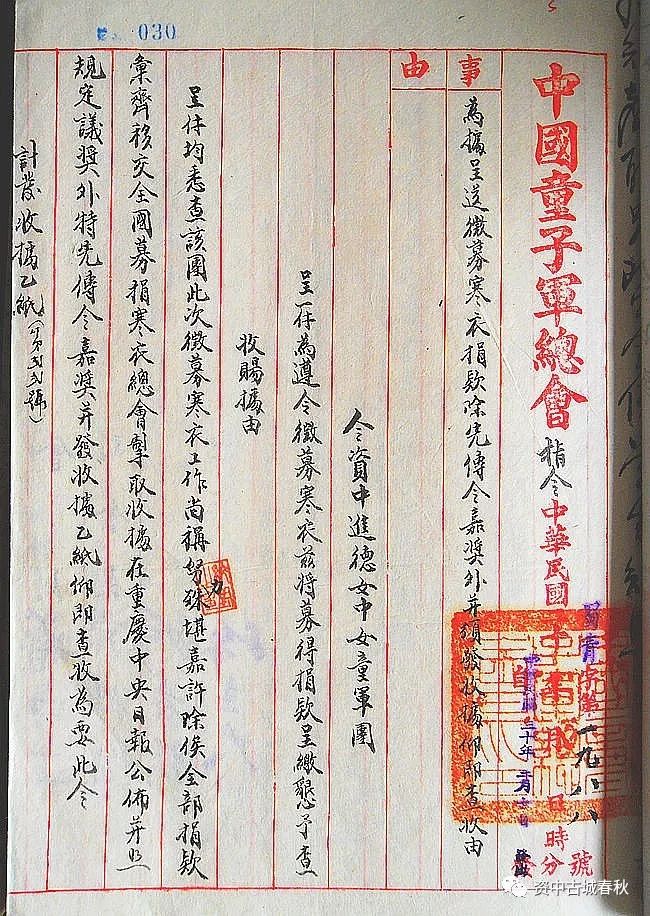 030
中國童子軍總會指令中華民國 年 月 日 時 分
號
蜀 字第一九八八
三十年 月 日
事由
為據呈送徵募寒衣捐款除先傳令嘉獎外并須發收據仰即查收由
令資中進德女中女童軍團
呈一件為遵令徵募寒衣茲將募得捐款呈繳懇予查
收賜據由
呈件均悉查該團此次徵募寒衣工作尚稱努力殊堪嘉許除俟全部捐款
彙齊移交全國募捐寒衣總會掣取收據在重慶中央日報公佈并照
規定議獎外特先傳令嘉獎并發收據乙紙仰即查收為要此令
計發收據乙紙
资中古城春秋